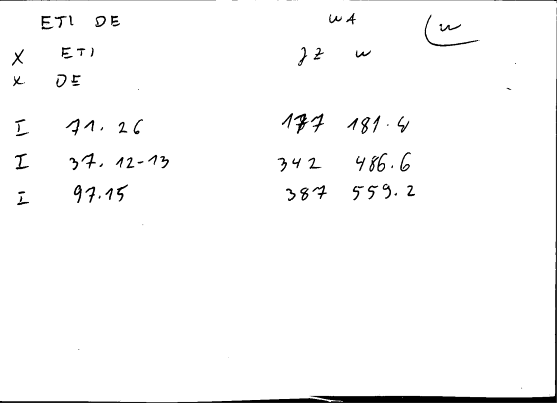 ETI DE WA w
X ETI JZ w
x DE
I 71. 26 177 181.4
I 37. 12-13 342 486.6
I 97.15 387 559.2